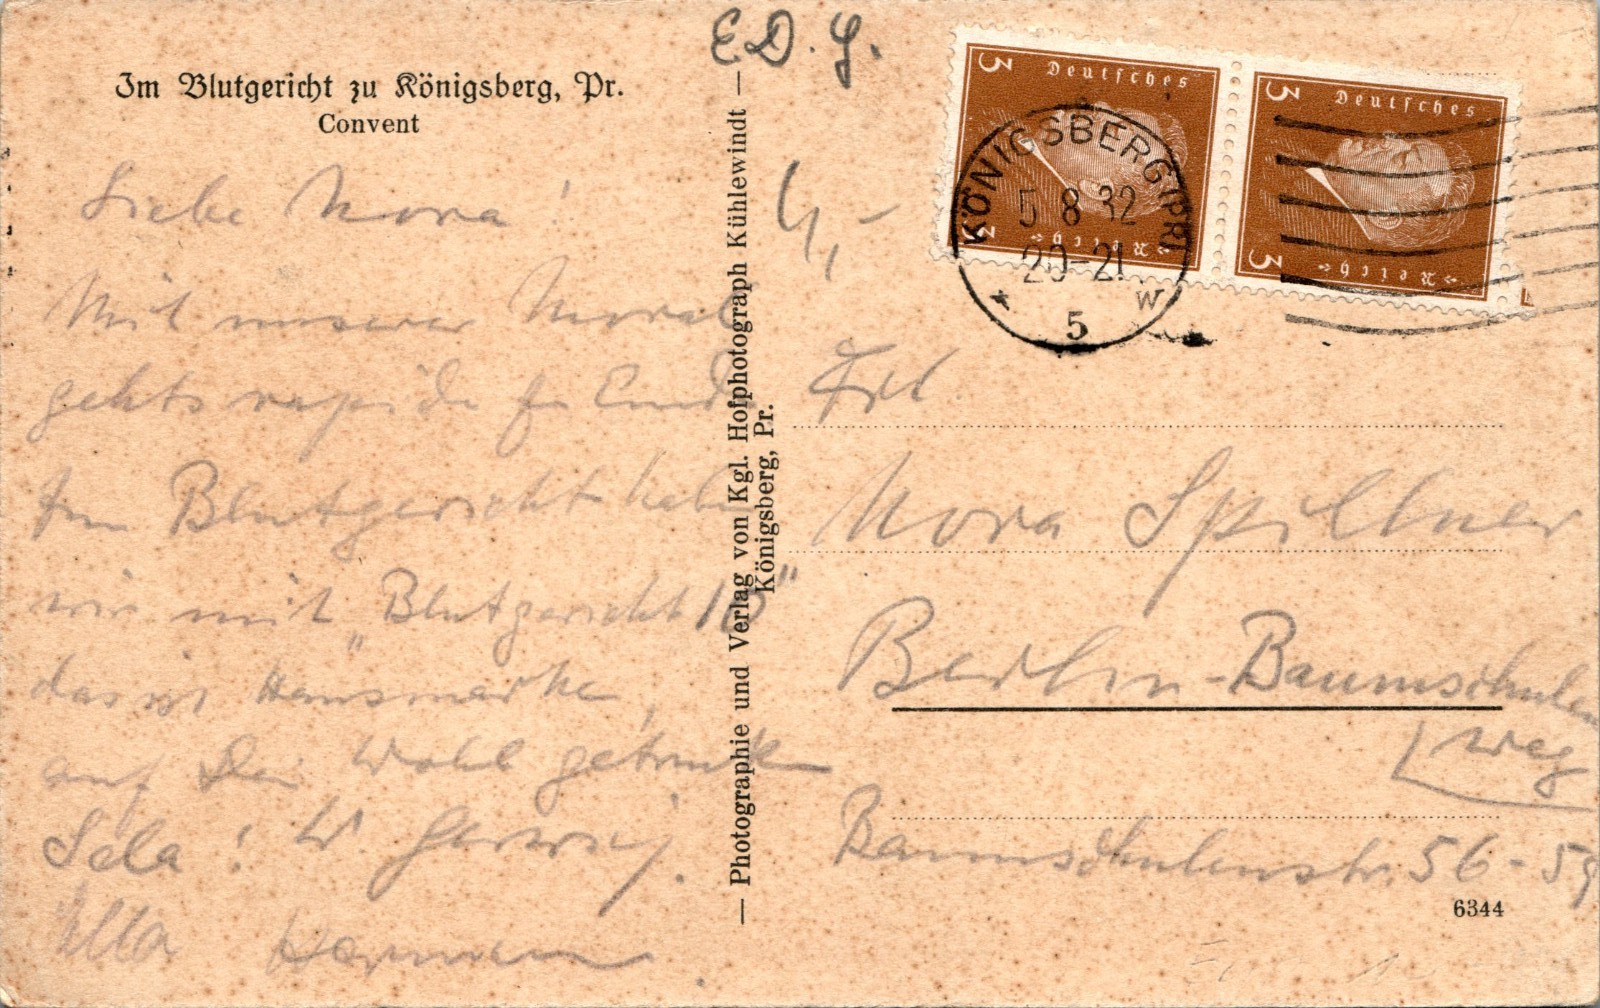 E.D.J.
Im Blutgericht zu Königsberg, Pr.
Convent
Liebe Nora!
Mit unserer Moral
gehts rapide z. Ende
Im Blutgericht haben
wir mit „Blutgericht 10"
das ist Hausmarke,
auf Dein Wohl getrunken
Sela! W.
Ella Hermann.
— Photographie und Verlag von Kgl. Hofphotograph Kühlewindt —
Königsberg, Pr.
4,-
Deutsches
Reich
3
3
Deutsches
Reich
3
3
KÖNIGSBERG (PR)
5 8 32
20-21
* 5 w
Frl
Nora Spillner
Berlin-Baumschulen
weg
Baumschulenstr. 56-59
6344